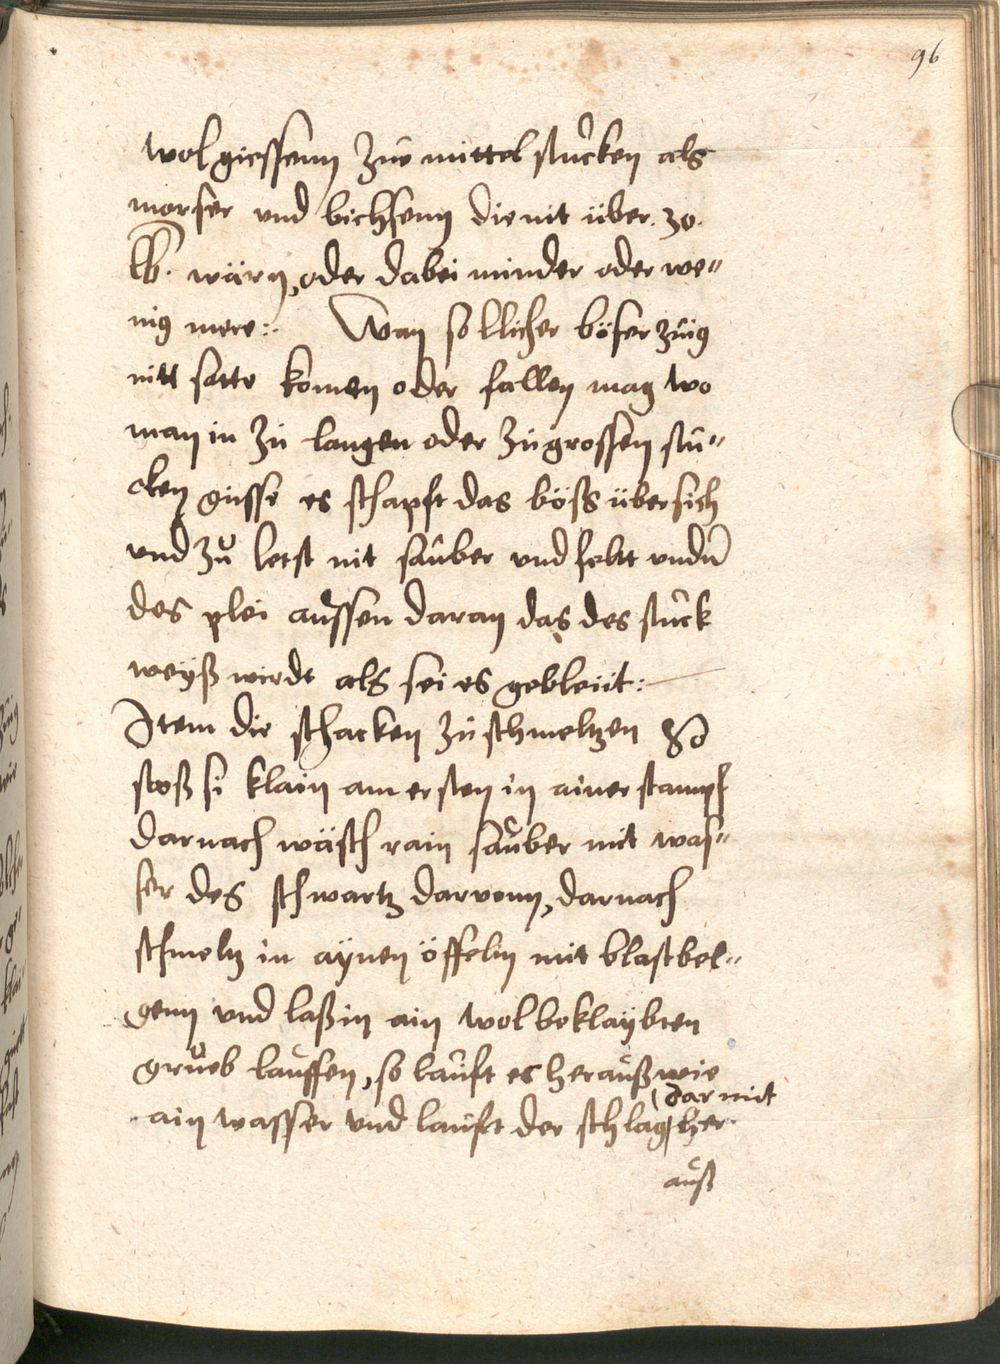 96
wol giessenn zue mittel stucken als
morser vnd bichsenn die nit über. 30.
lb. wärn, oder dabei minder oder we„
nig mere:. Wan sollicher böser züig
nitt satte komen oder fallen mag wo
man in zu langen oder zu grossen stu„
cken gusse es schapft das böss übersich
vnd zů letst nit sauber vnd feltt vnden
des plei aussen daran das des stuck
weÿß wirdt als sei es gebleiit:
Item die schacken zu schmeltzen So
stoß si klain am ersten in ainer stampf
darnach wäsch rain sauber mit was„
ser des schwartz darvonn, darnach
schmeltz in aÿnen öffelin mit blastbel„
genn vnd laß in ain wol beklaÿbten
grueb lauffen, so lauft es herauß wie
ain wasser vnd lauft der schlag her
dar mit
auß